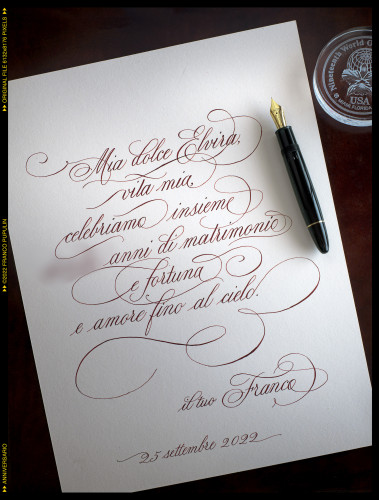 Mia dolce Elvira,
vita mia,
celebriamo insieme
anni di matrimonio
e fortuna
e amore fino al cielo.
il tuo Franco
25 settembre 2022
Nineteenth World
USA
ORIGINAL FILE 6132x8176 PIXELS
©2022 FRANCO PUPULIN
ANNIVERSARIO